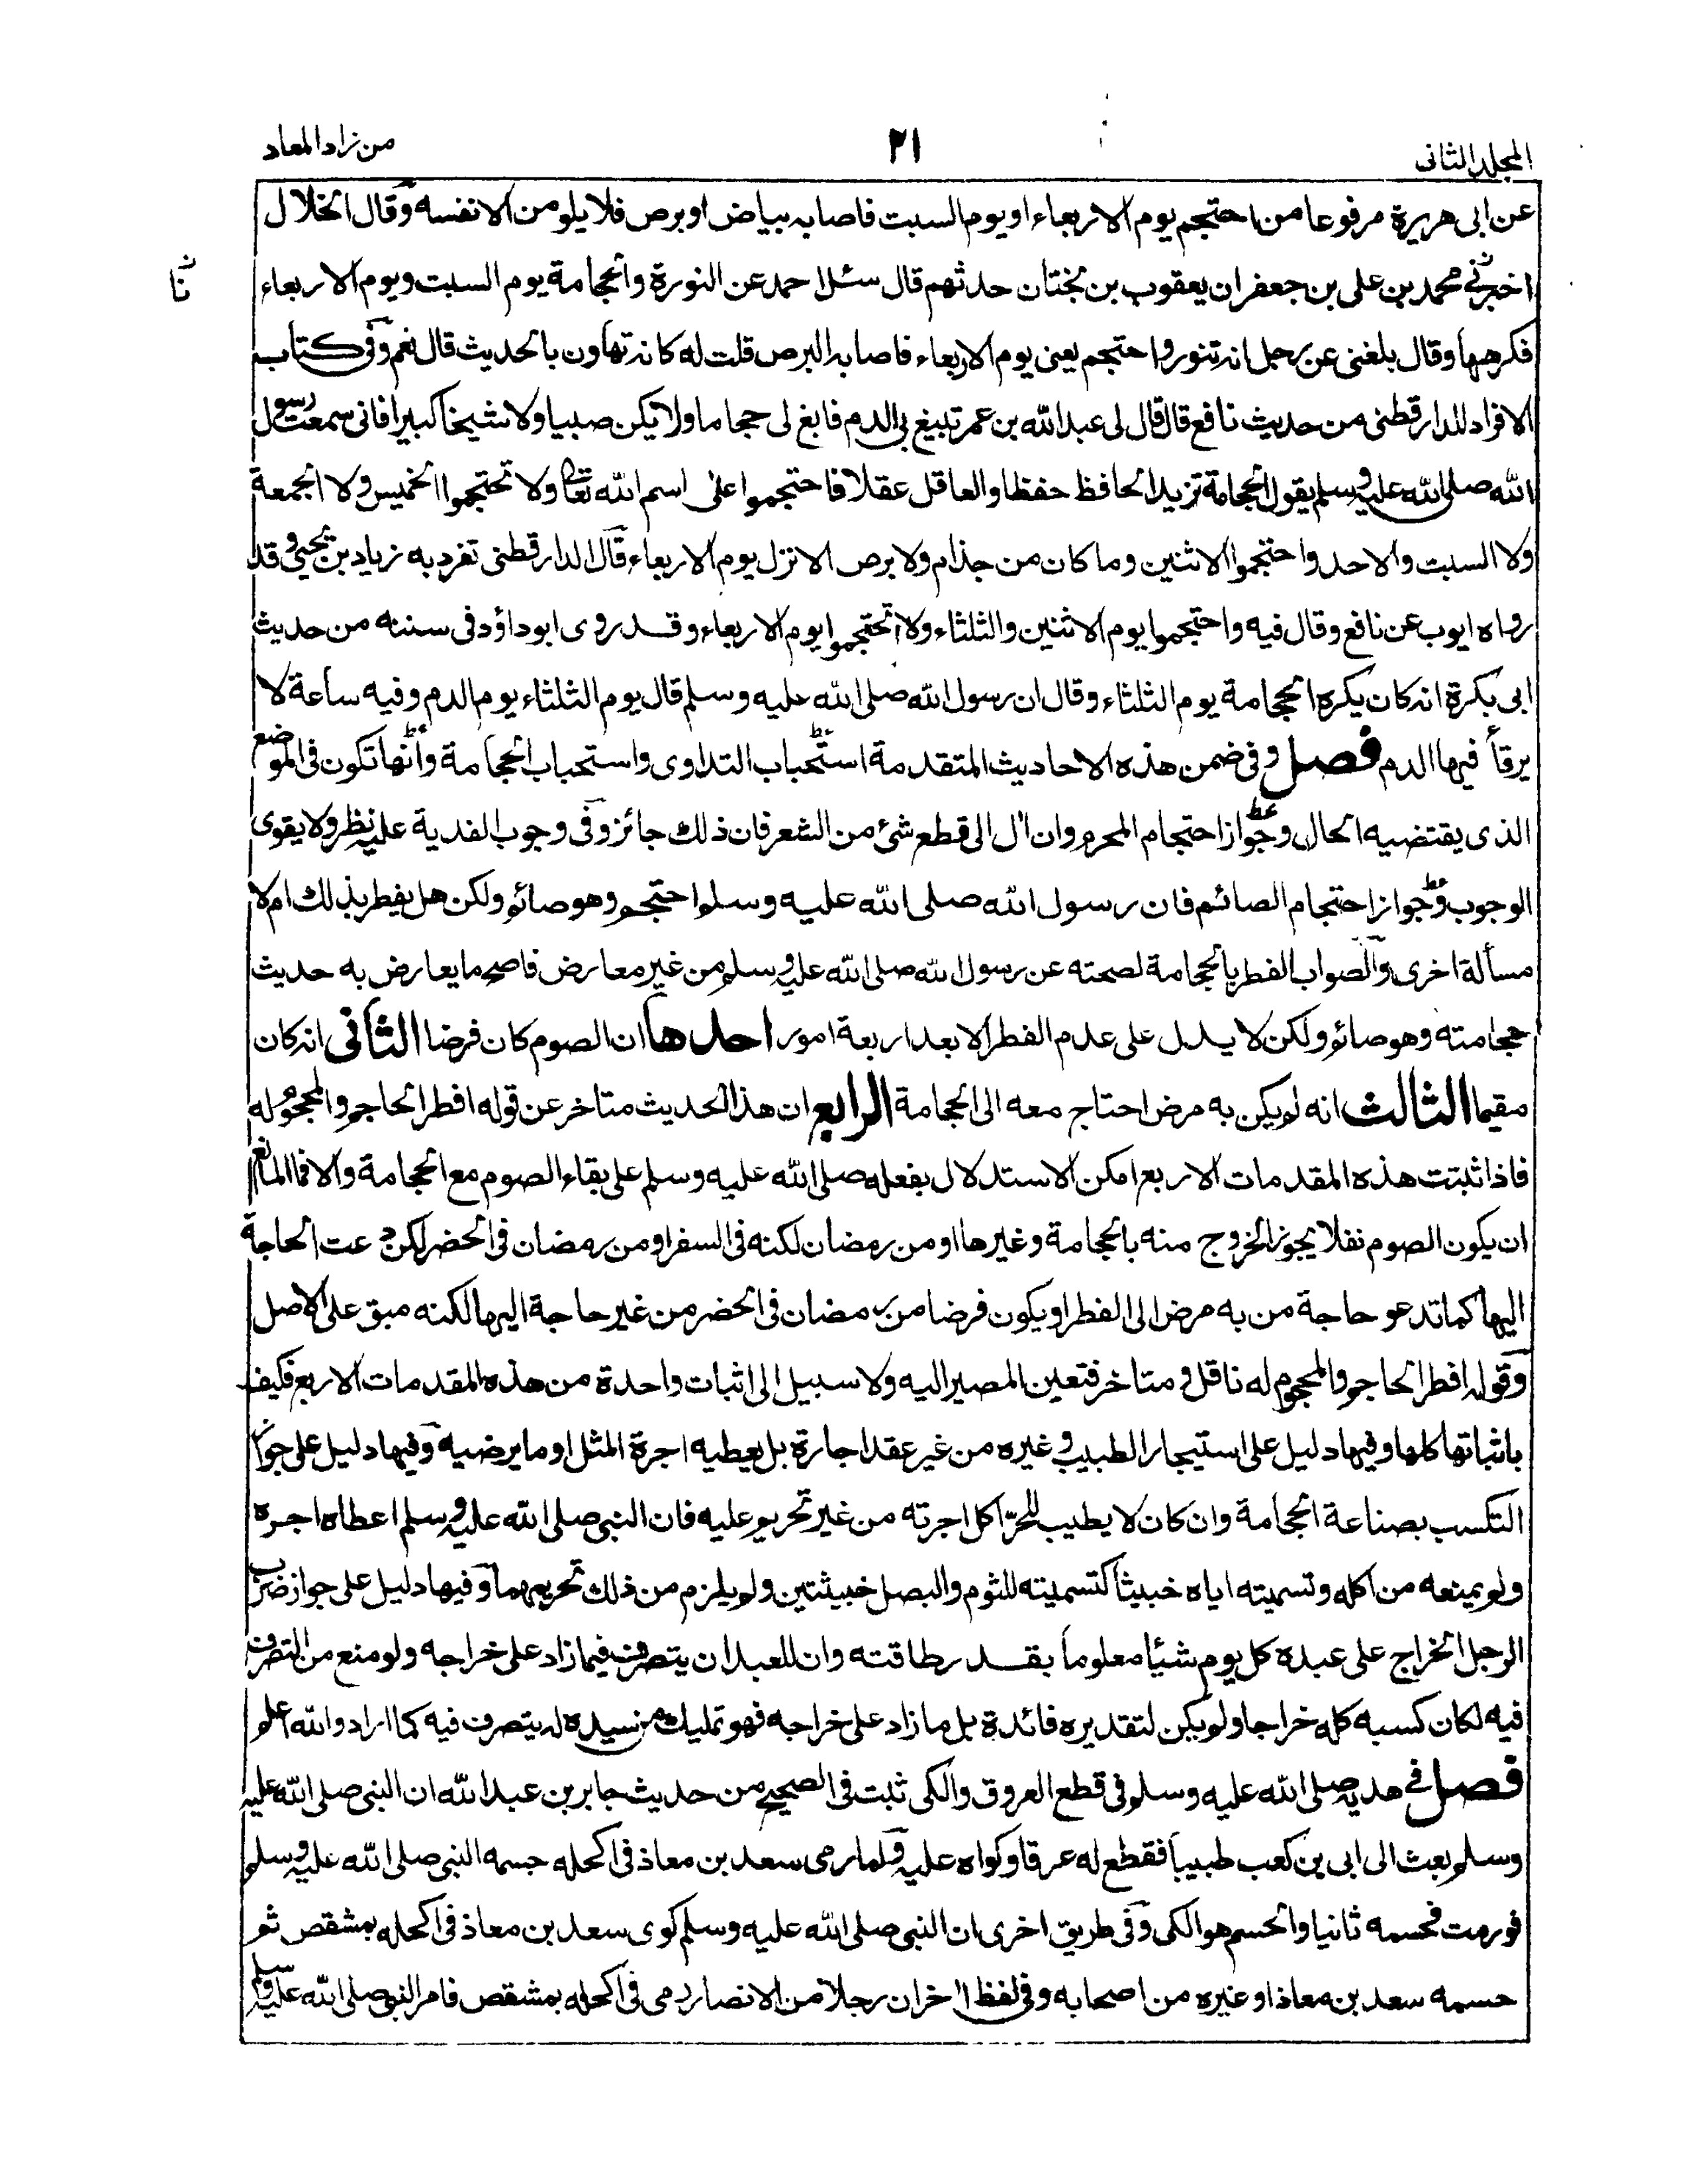 المجلد الثانی
٢١
من زاد المعاد
عن ابی هريرة مرفوعا من احتجم يوم الاربعاء او يوم السبت فاصابه بياض او برص فلا يلومن الا نفسه وقال الخلال
اخبرنے محمد بن علی بن جعفر ان يعقوب بن بختان حدثهم قال سئل احمد عن النورة والحجامة يوم السبت ويوم الاربعاء
نا
فكرهها وقال بلغنی عن رجل انه تنور واحتجم يعنی يوم الاربعاء فاصابه البرص قلت له كانه تهاون بالحديث قال نعم وفی كتاب
الافراد للدارقطنی من حديث نافع قال قال لی عبد الله بن عمر تبيغ بی الدم فابغ لی حجاما ولا يكن صبيا ولا شيخا كبيرا فانی سمعت رسول
الله صلی الله عليه وسلم يقول الحجامة تزيد الحافظ حفظا والعاقل عقلا فاحتجموا علی اسم الله تعالی ولا تحتجموا الخميس ولا الجمعة
ولا السبت والاحد واحتجموا الاثنين وما كان من جذام ولا برص الا نزل يوم الاربعاء قال الدارقطنی تفرد به زياد بن يحيی وقد
رواه ايوب عن نافع وقال فيه واحتجموا يوم الاثنين والثلثاء ولا تحتجموا يوم الاربعاء وقد روی ابو داؤد فی سننه من حديث
ابی بكرة انه كان يكره الحجامة يوم الثلثاء وقال ان رسول الله صلی الله عليه وسلم قال يوم الثلثاء يوم الدم وفيه ساعة لا
يرقأ فيها الدم فصل وفی ضمن هذه الاحاديث المتقدمة استحباب التداوی واستحباب الحجامة وانها تكون فی الموضع
الذی يقتضيه الحال وجواز احتجام المحرم وان ال الی قطع شئ من الشعر فان ذلك جائز وفی وجوب الفدية عليه نظر ولا يقوی
الوجوب وجواز احتجام الصائم فان رسول الله صلی الله عليه وسلم احتجم وهو صائم ولكن هل يفطر بذلك ام لا
مسألة اخری والصواب الفطر بالحجامة لصحته عن رسول الله صلی الله عليه وسلم من غير معارض فاصح ما يعارض به حديث
حجامته وهو صائم ولكن لا يدل علی عدم الفطر الا بعد اربعة امور احدها ان الصوم كان فرضا الثانی انه كان
مقيما الثالث انه لم يكن به مرض احتاج معه الی الحجامة الرابع ان هذا الحديث متاخر عن قوله افطر الحاجم والمحجوم له
فاذا ثبتت هذه المقدمات الاربع امكن الاستدلال بفعله صلی الله عليه وسلم علی بقاء الصوم مع الحجامة والا فما المانع
ان يكون الصوم نفلا يجوز الخروج منه بالحجامة وغيرها او من رمضان لكنه فی السفر او من رمضان فی الحضر لكن دعت الحاجة
اليها كما تدعو حاجة من به مرض الی الفطر او يكون فرضا من رمضان فی الحضر من غير حاجة اليها لكنه مبق علی الاصل
وقوله افطر الحاجم والمحجوم له ناقل ومتاخر فتعين المصير اليه ولا سبيل الی اثبات واحدة من هذه المقدمات الاربع فكيف
باثباتها كلها وفيها دليل علی استيجار الطبيب وغيره من غير عقد اجارة بل يعطيه اجرة المثل او ما يرضيه وفيها دليل علی جواز
التكسب بصناعة الحجامة وان كان لا يطيب للحر اكل اجرته من غير تحريم عليه فان النبی صلی الله عليه وسلم اعطاه اجره
ولم يمنعه من اكله وتسميته اياه خبيثا كتسميته للثوم والبصل خبيثتين ولم يلزم من ذلك تحريمهما وفيها دليل علی جواز ضرب
الرجل الخراج علی عبده كل يوم شيئا معلوما بقدر طاقته وان للعبد ان يتصرف فيما زاد علی خراجه ولو منع من التصرف
فيه لكان كسبه كله خراجا ولم يكن لتقديره فائدة بل ما زاد علی خراجه فهو تمليك من سيده له يتصرف فيه كما اراد والله اعلم
فصل فے هديه صلی الله عليه وسلم فی قطع العروق والكی ثبت فی الصحيح من حديث جابر بن عبد الله ان النبی صلی الله عليه
وسلم بعث الی ابی بن كعب طبيبا فقطع له عرقا وكواه عليه ولما رمی سعد بن معاذ فی اكحله حسمه النبی صلی الله عليه وسلم
فورمت فحسمه ثانيا والحسم هو الكی وفی طريق اخری ان النبی صلی الله عليه وسلم كوی سعد بن معاذ فی اكحله بمشقص ثم
حسمه سعد بن معاذ او غيره من اصحابه وفی لفظ اخر ان رجلا من الانصار رمی فی اكحله بمشقص فامر النبی صلی الله عليه وسلم